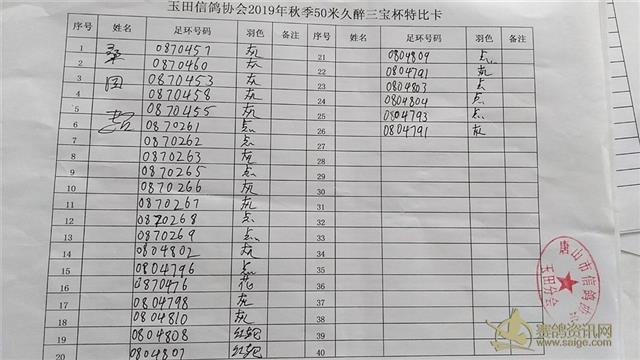 玉田信鸽协会2019年秋季50米久醉三宝杯特比卡
序号 姓名 足环号码 羽色 备注 序号 姓名 足环号码 羽色 备注
1 桑 0870457 灰 21 0804809 点
2 0870460 灰 22 0804791 灰
3 田 0870453 灰 23 0804803 点
4 0870458 灰 24 0804804 点
5 0870455 灰 25 0804793 点
6 0870261 点 26 0804791 灰
7 0870262 点 27
8 0870263 灰 28
9 0870265 点 29
10 0870266 灰 30
11 0870267 灰 31
12 0870268 点 32
13 0870269 点 33
14 0804802 灰 34
15 0804796 点 35
16 0870476 花 36
17 0804798 灰 37
18 0804810 灰 38
19 0804808 红轮 39
20 0804807 红轮 40
唐山市信鸽协会
玉田分会
赛鸽资讯网
www.saige.com